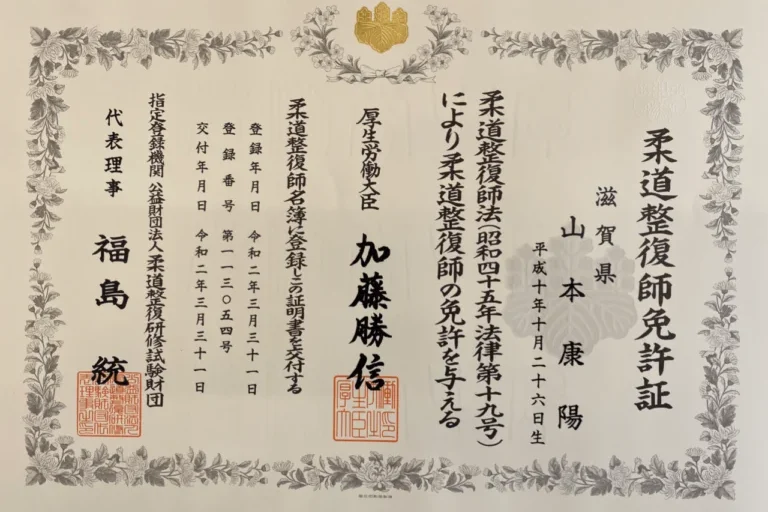 柔道整復師免許証
滋賀県
山本康陽
平成十年十月二十六日生
柔道整復師法(昭和四十五年法律第十九号)
により柔道整復師の免許を与える
厚生労働大臣 加藤勝信
柔道整復師名簿に登録しこの証明書を交付する
登録年月日 令和二年三月三十一日
登録番号 第一一三〇五四号
交付年月日 令和二年三月三十一日
指定登録機関 公益財団法人柔道整復研修試験財団
代表理事 福島統